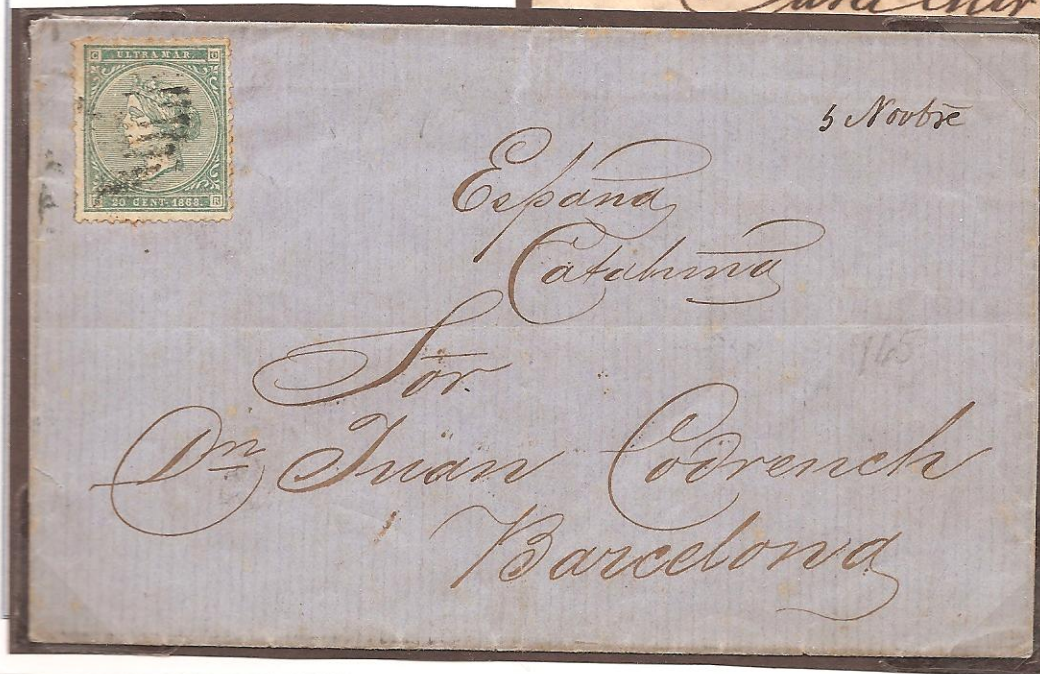 C O
ULTRAMAR.
R
20 CENT. 1868.
5 Novbre
España
Cataluna
Sor.
Dn Juan Codrench
Barcelona
165